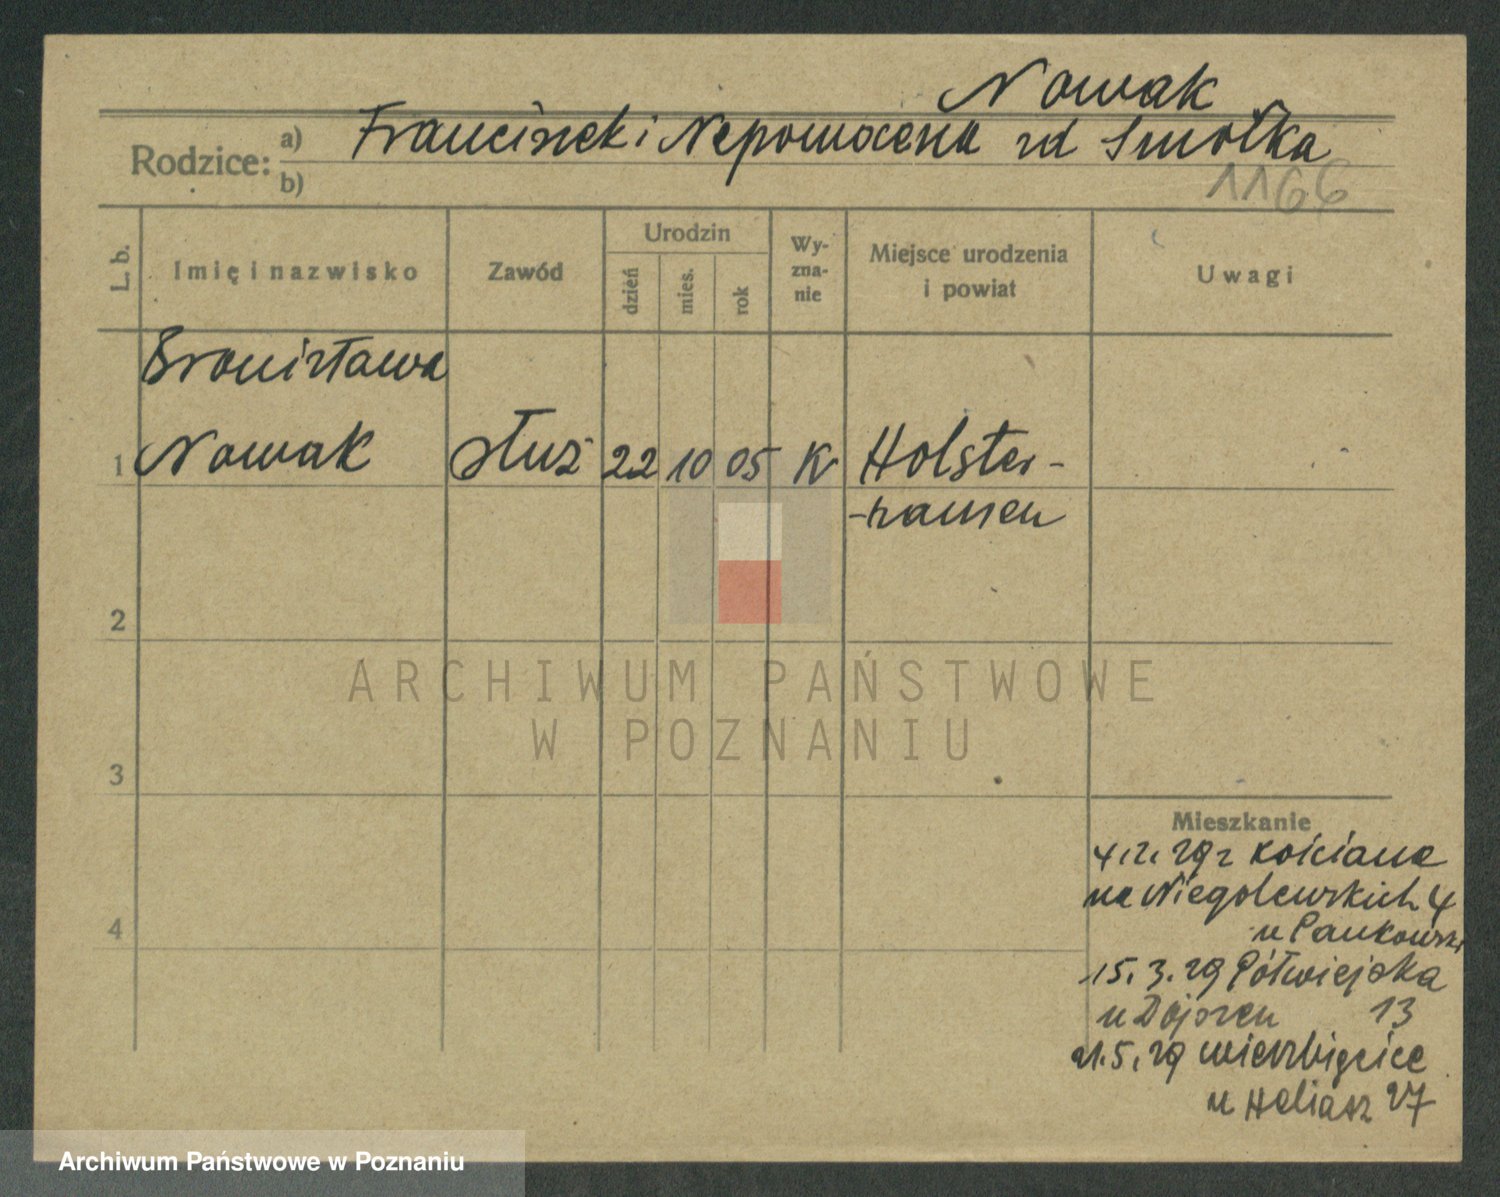 Nowak
Rodzice: a) Franciszek i Nepomocena zd Smolka
b)
1166
L. b.
Imię i nazwisko
Zawód
Urodzin
dzień
mies.
rok
Wy-
zna-
nie
Miejsce urodzenia
i powiat
Uwagi
Bronisława
1 Nowak służ 22 10 05 K Holster-
-hausen
2
ARCHIWUM PAŃSTWOWE
W POZNANIU
3
Mieszkanie
29 z Kościana
na Niegolewskich 4
4
u Pankowski
15. 3. 29 Półwiejska
u 13
21. 5. 29 Wierzbięcice
u Heliasz 27
Archiwum Państwowe w Poznaniu